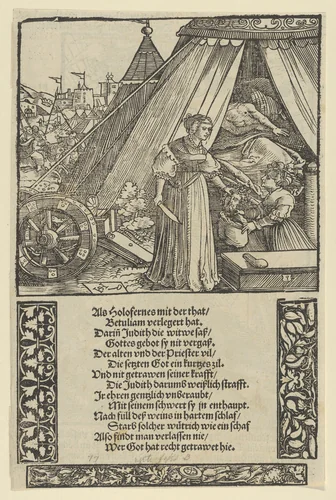 Als Holofernes mit der that/
Betuliam verlegert hat.
Dariñ Judith die witwe saß/
Gottes gebot sy nit vergaß.
Der alten vnd der Priester vil/
Die setzten Got ein kurtzes zil.
Vnd nit getrawten seiner krafft/
Die Judith darumb weißlich strafft.
Jr ehren gentzlich vnberaubt/
Mit seinem schwert sy jn enthaupt.
Nach füll deß weins in hartem schlaf/
Starb solcher wütrich wie ein schaf
Also findt man verlassen nie/
Wer Got hat recht getrawet hie.